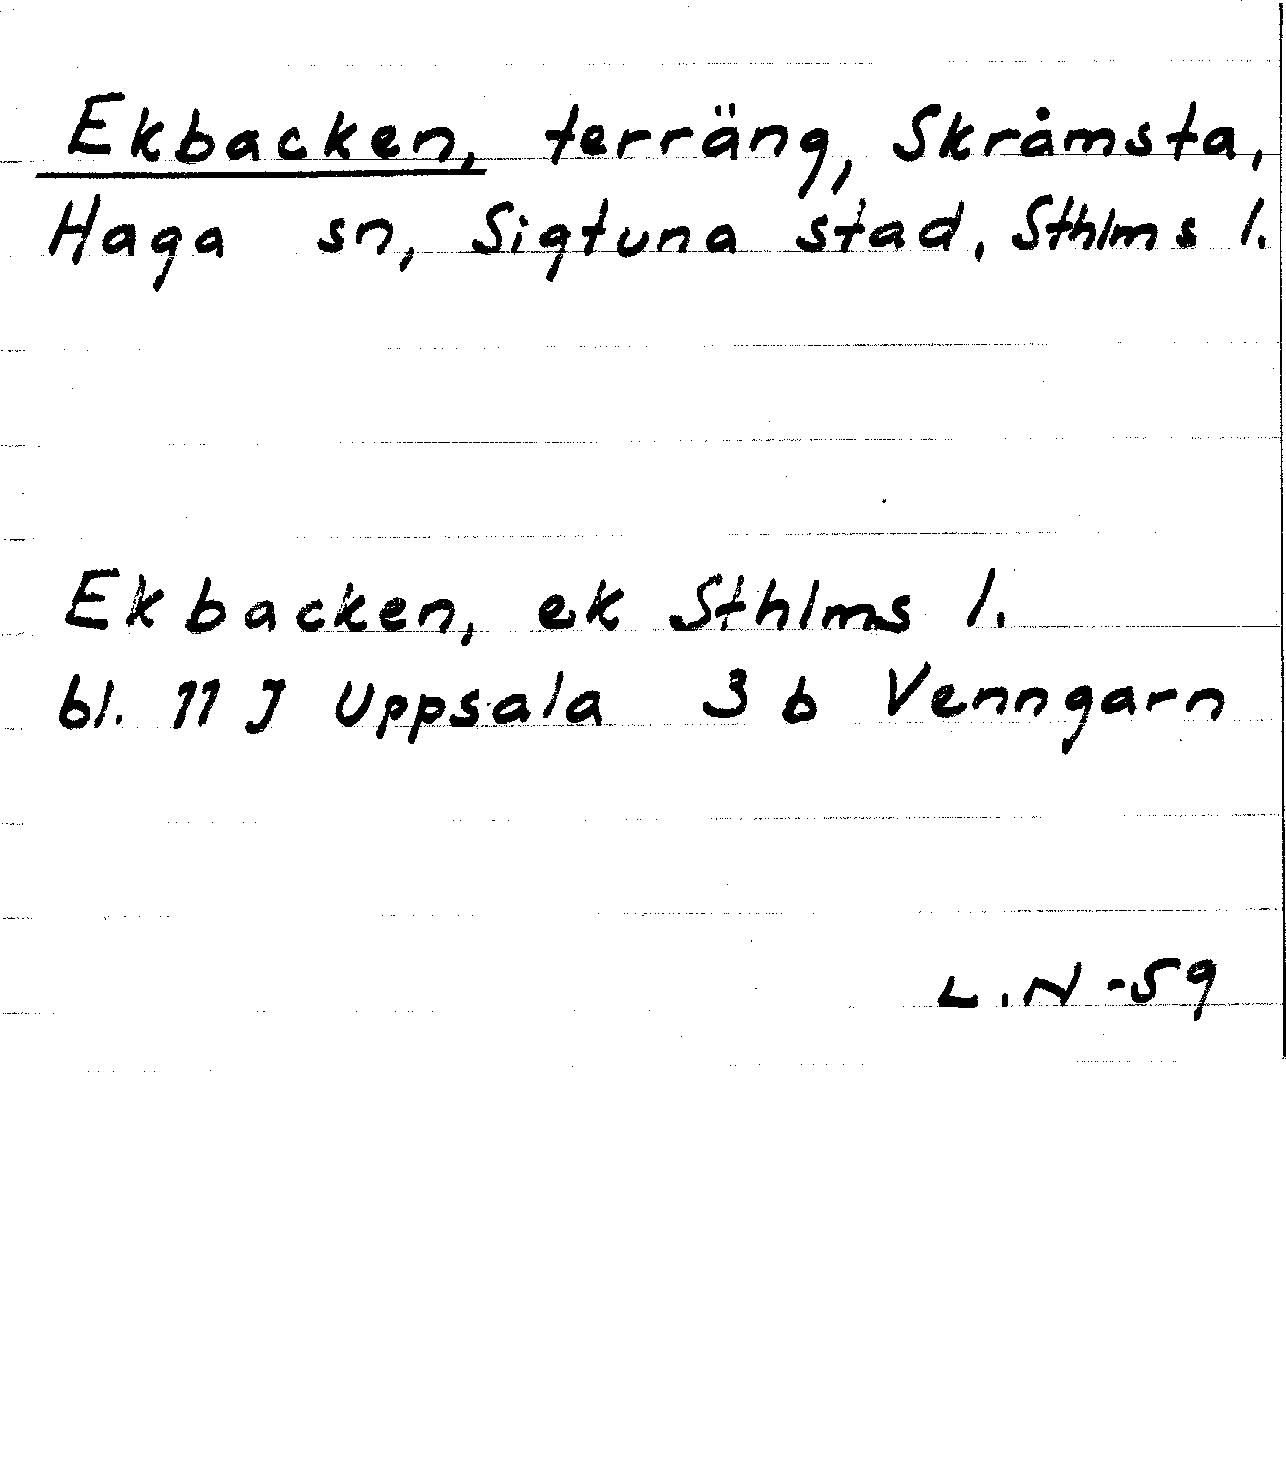 Ekbacken, terräng, Skråmsta,
Haga sn, Sigtuna stad, Sthlms l.
Ekbacken, ek Sthlms l.
bl. 11 J Uppsala 3 b Venngarn
L.N -59